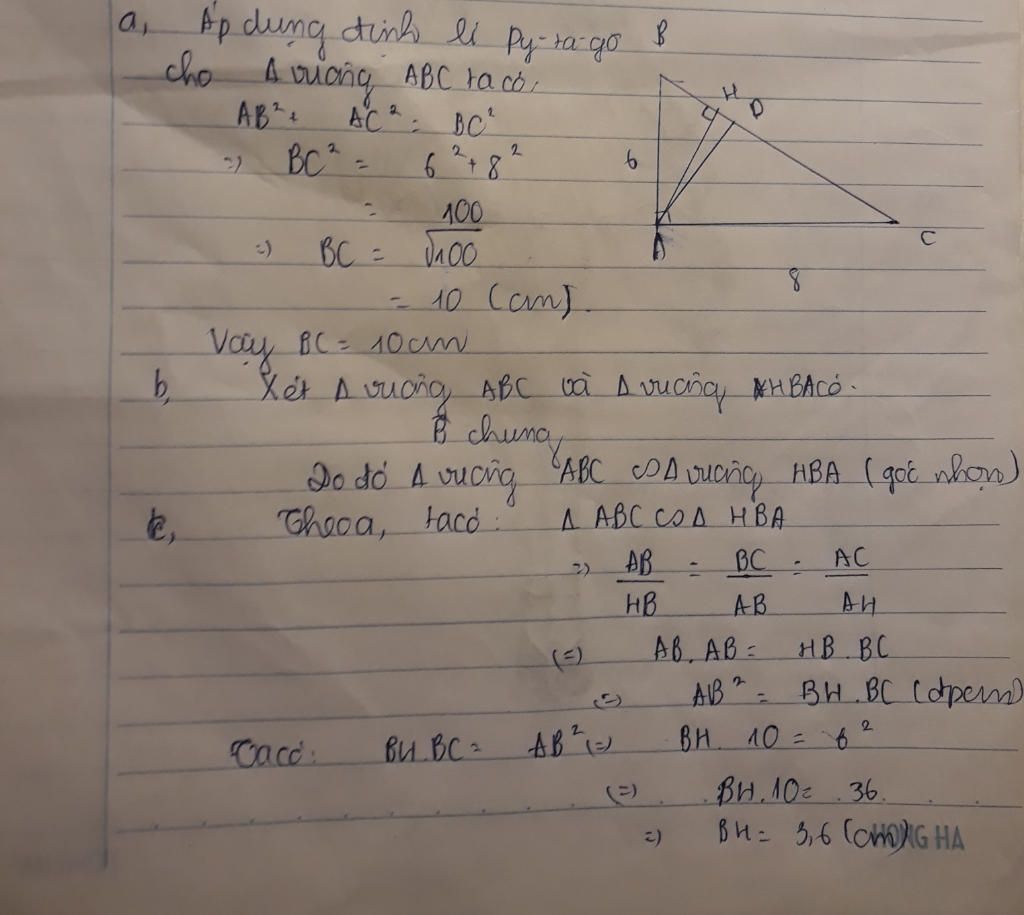 a, Áp dụng định lí Py-ta-go
cho Δ vuông ABC ta có,
AB² + AC² = BC²
=) BC² = 6² + 8²
= 100
=) BC = √100
= 10 (cm).
Vậy BC = 10cm
B
H
D
6
A
C
8
b, Xét Δ vuông ABC và Δ vuông HBA có.
B̂ chung
Do đó Δ vuông ABC ∽ Δ vuông HBA (góc nhọn)
c, Theo a, ta có: Δ ABC ∽ Δ HBA
=) AB/HB = BC/AB = AC/AH
(=) AB. AB = HB . BC
(=) AB² = BH. BC (đpcm)
Ta có: BH.BC = AB² (=) BH. 10 = 6²
(=) BH. 10 = 36.
=) BH = 3,6 (cm)
HONG HA